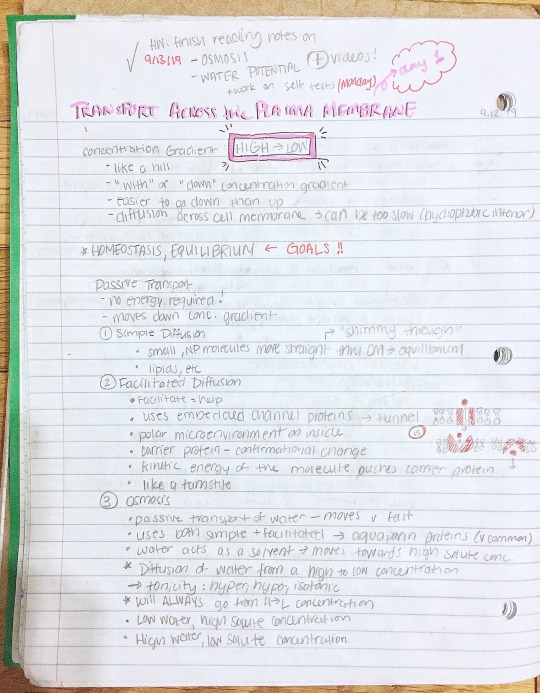 HW: finish reading notes on
✓ 9/13/19 - OSMOSIS
- WATER POTENTIAL + videos!
+work on self tests (Monday)
day 1
TRANSPORT ACROSS the PLASMA MEMBRANE
9.12.19
Concentration Gradient HIGH → LOW
- like a hill
- "with" or "down" concentration gradient
- easier to go down than up
- diffusion across cell membrane → can be too slow (hydrophobic interior)
* HOMEOSTASIS, EQUILIBRIUM ← GOALS!!
Passive Transport
- no energy required!
- moves down conc. gradient
① Simple Diffusion
→ "shimmy through"
• small, NP molecules move straight thru CM → equilibrium
• lipids, etc
② Facilitated Diffusion
• Facilitate = help
• uses embedded channel proteins → tunnel
• polar microenvironment on inside
vs
• carrier protein - confirmational change
• kinetic energy of the molecule pushes carrier protein
• like a turnstile
③ Osmosis
• passive transport of water - moves v fast
• uses both simple + facilitated → aquaporin proteins (v common)
• water acts as a solvent → moves towards high solute conc.
* Diffusion of water from a high to low concentration
→ tonicity: hyper, hypo, isotonic
* Will ALWAYS go from H→L concentration
• Low water, high solute concentration
• High water, low solute concentration